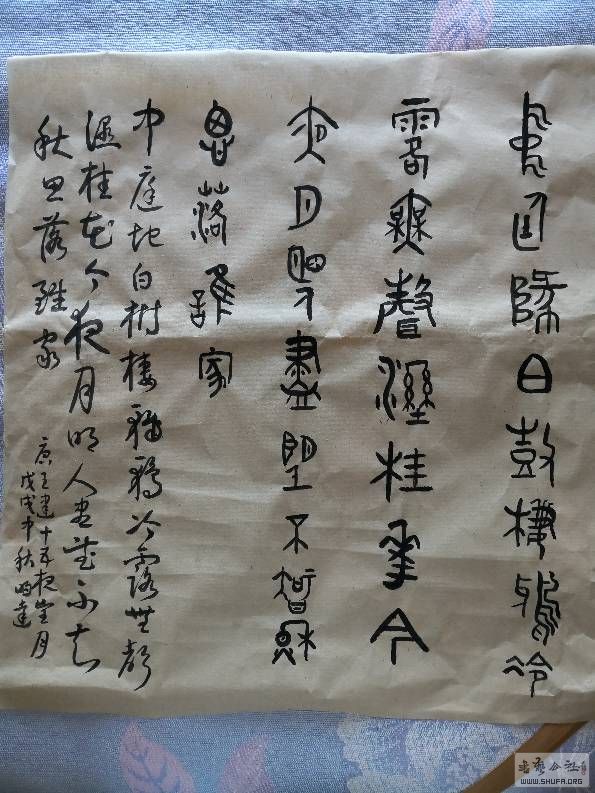 中庭地白樹棲鴉冷
露無聲濕桂華今
夜月明人盡望不智秋
思落誰家
中庭地白樹棲鴉冷露無聲
濕桂花今夜月明人盡望不知
秋思落誰家
唐王建十五夜望月
戊戌中秋明達
书艺公社
WWW.SHUFA.ORG